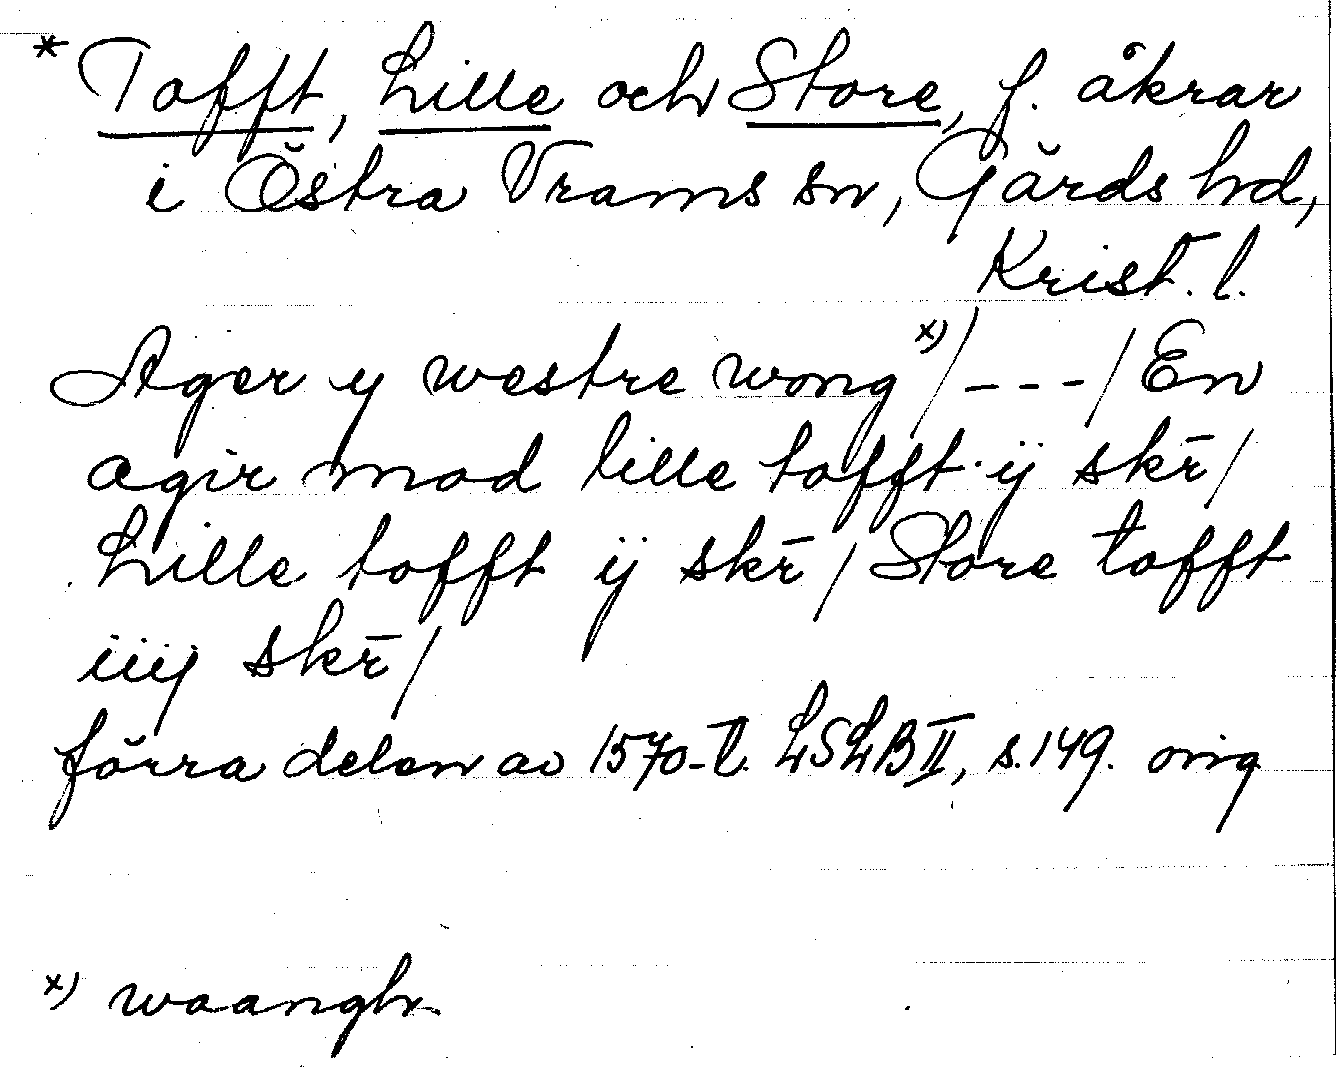 * Tofft, Lille och Store, f. åkrar
i Östra Vrams sn, Gärds hd,
Krist. l.
Ager y westre wong x) / --- / En
agir mod lille tofft ij skr̄ /
Lille tofft ij skr̄ / Store tofft
iiij skr̄ /
förra delen av 1570-t. LSLB II, s. 149. orig
x) waangh